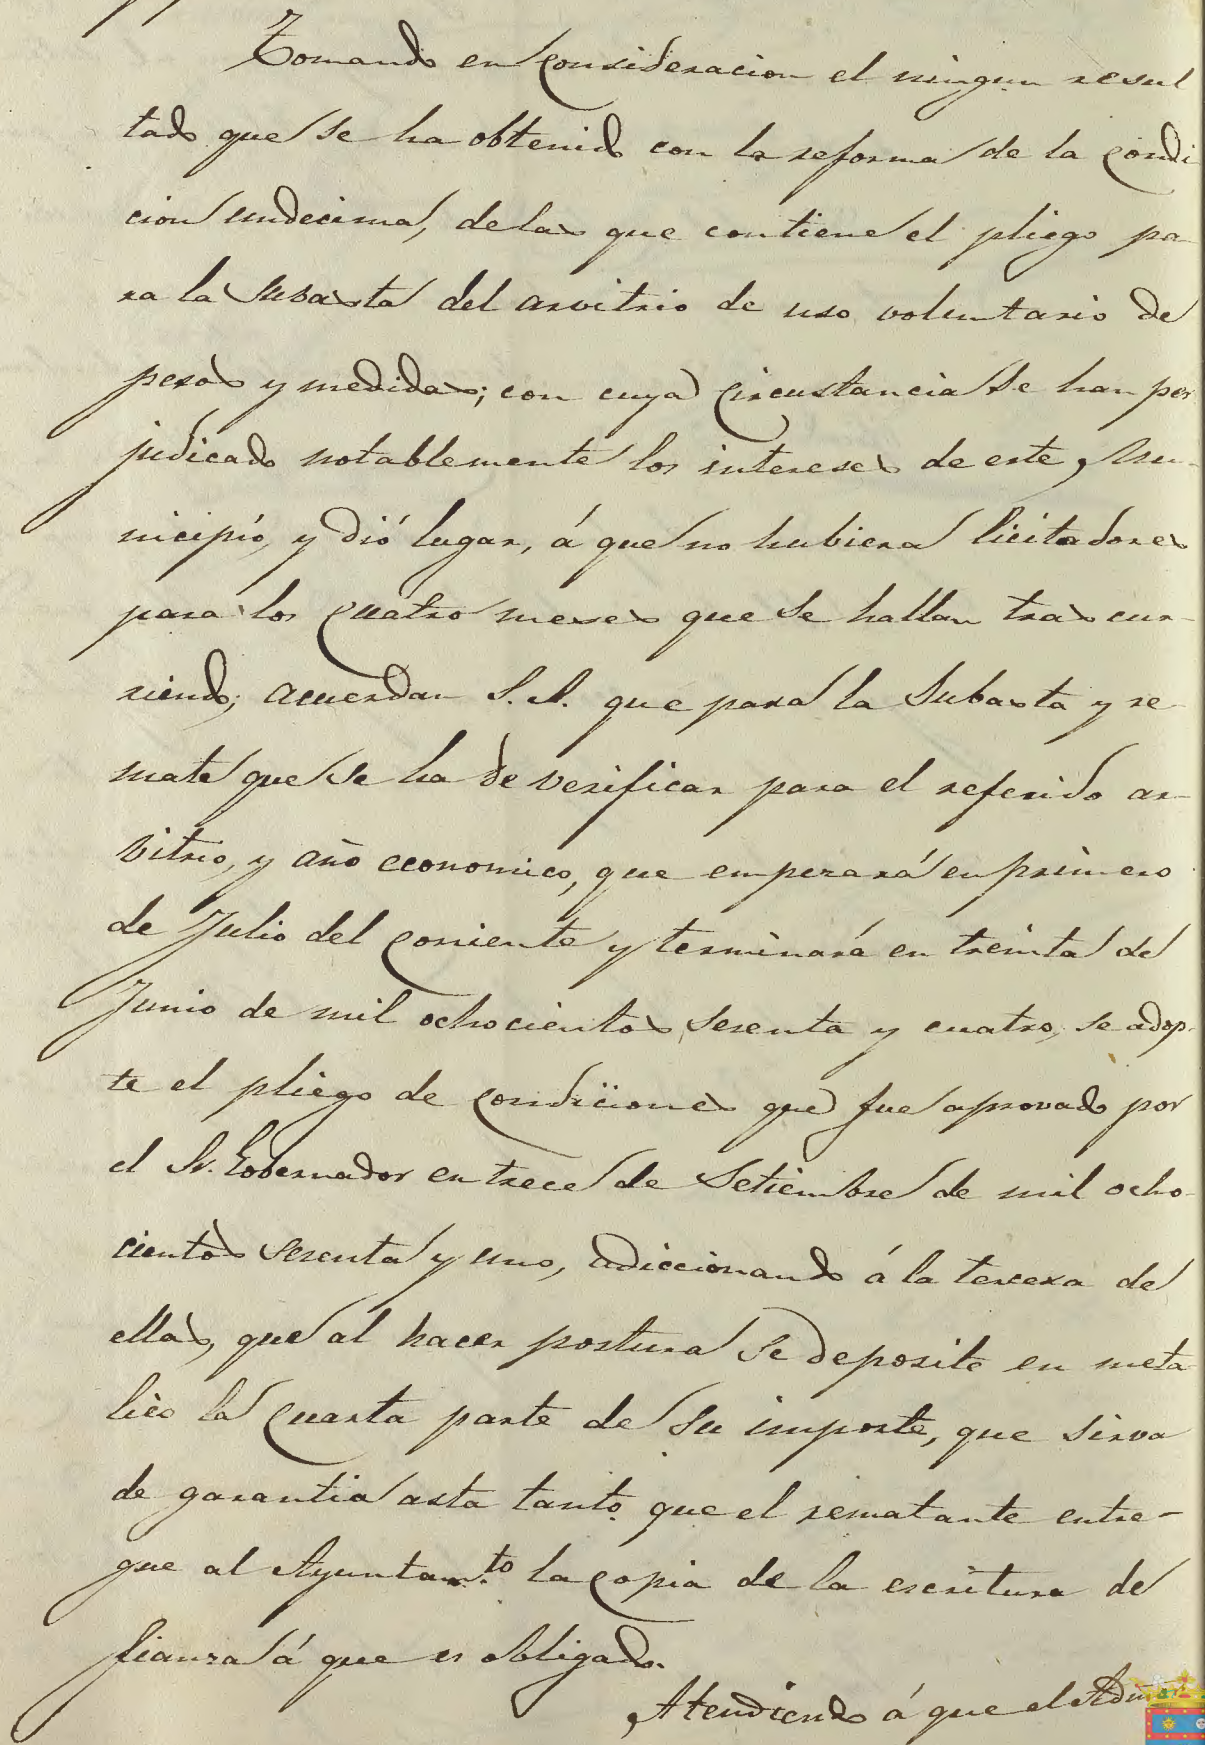 Tomando en consideracion el ningun resul
tado que se ha obtenido con la reforma de la condi
cion undecima, de las que contiene el pliego pa-
ra la subasta del arvitrio de uso voluntario de
pesas y medidas; con cuya circustancia se han per
judicado notablemente los intereses de este Mu-
nicipió, y dió lugar, á que no hubiera licitadores
para los cuatro meses que se hallan tras cur-
riendo; acuerdan S.S. que para la Subasta y re-
mate que se ha de verificar para el referido ar-
bitrio, y año economico, que emperará en primero
de Julio del corriente y terminará en treinta de
Junio de mil ochocientos sesenta y cuatro, se adop-
te el pliego de condiciones que fue aprovado por
el Sr. Gobernador en trece de Setiembre de mil ocho-
cientos sesenta y uno, adiccionando á la tercera de
ellas, que al hacer postura se deposite en meta-
lico la cuarta parte de su importe, que sirva
de garantia asta tanto que el rematante entre-
gue al Ayuntam.to la copia de la escritura de
fianza á que es obligado.
Atendiendo á que el Admor